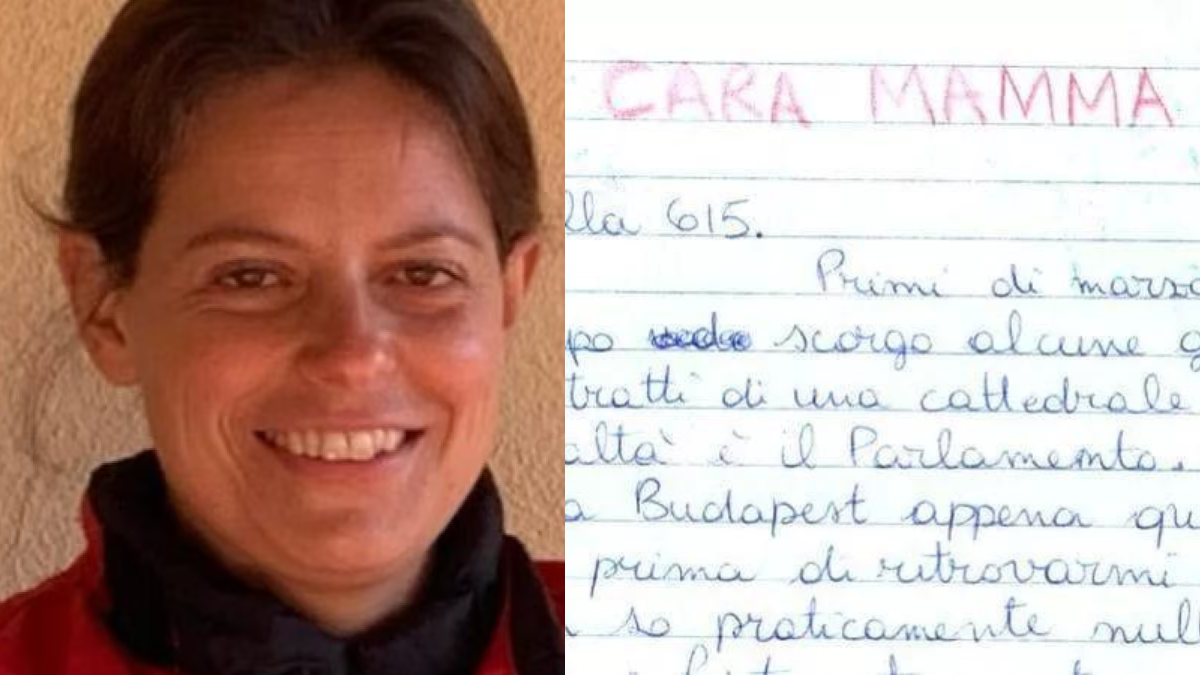 CARA MAMMA
lla 615.
Primi di marzo
po scorgo alcune g
tratti di una cattedrale
altà è il Parlamento.
a Budapest appena qu
prima di ritrovarmi
so praticamente null